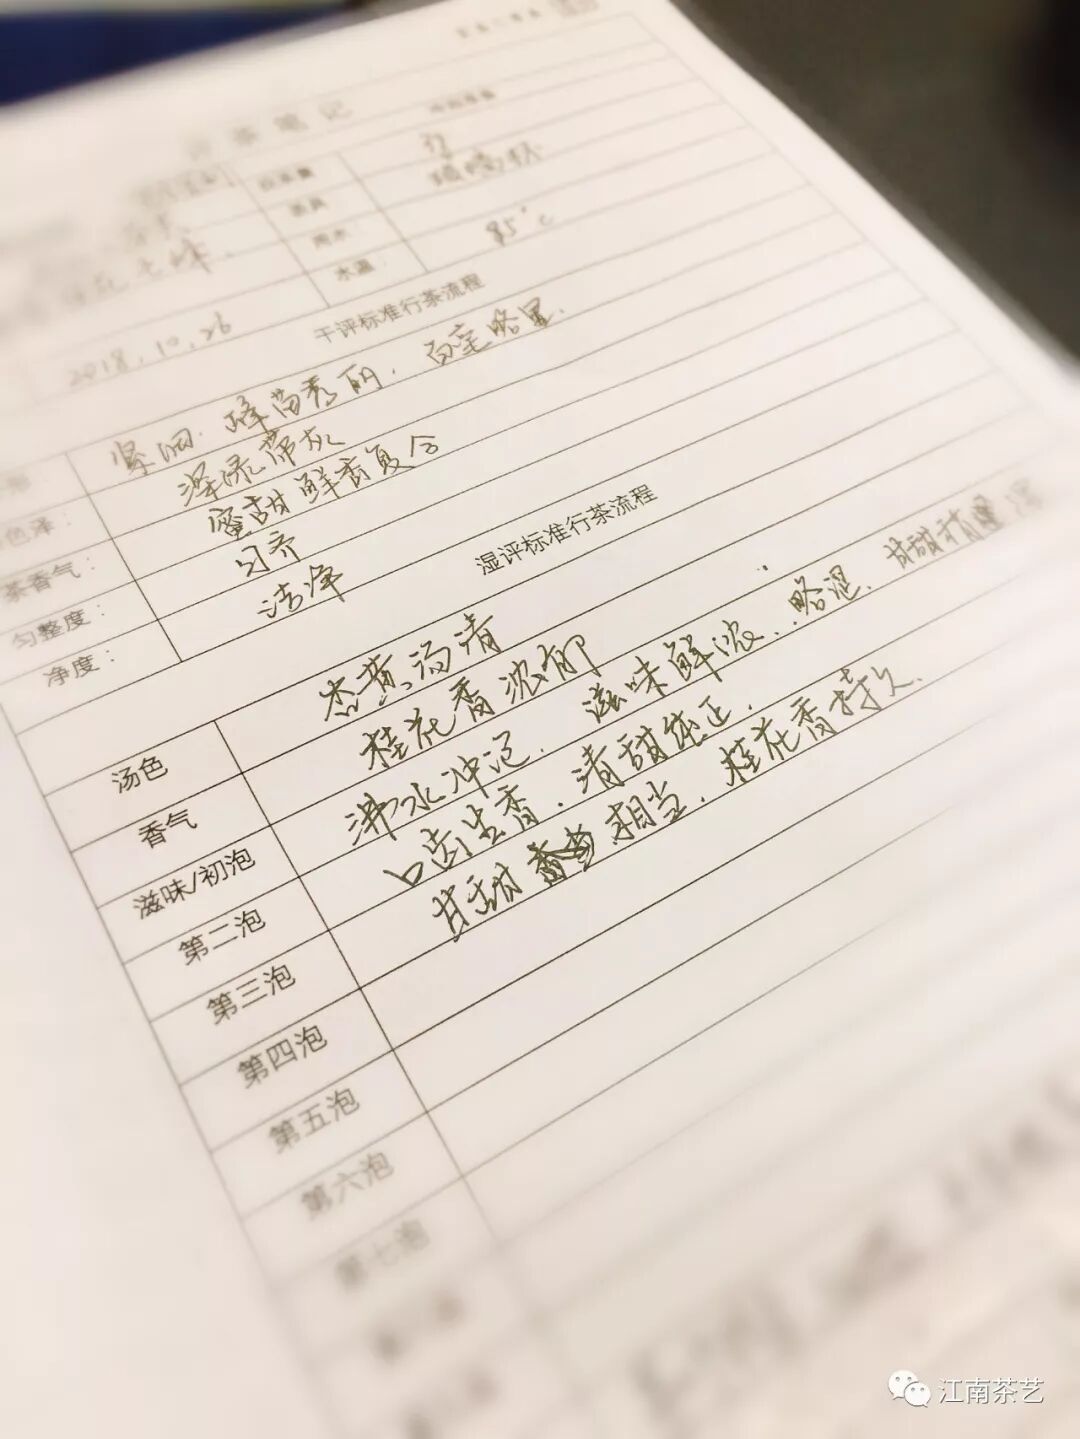 茶笔记
茶具
用水：
水温： 85℃
2018.10.26
干评标准行茶流程
紧细．峰苗秀丽．白毫略显．
色泽： 深绿带灰
茶香气： 蜜甜鲜香复合
匀整度： 匀齐
净度： 洁净
湿评标准行茶流程
汤色 杏黄汤清
香气 桂花香浓郁
滋味/初泡 沸水冲泡．滋味鲜浓．略涩．甘甜
第二泡 口齿生香．清甜纯正．
第三泡 甘甜相当．桂花香持久．
第四泡
第五泡
第六泡
第七泡
江南茶艺